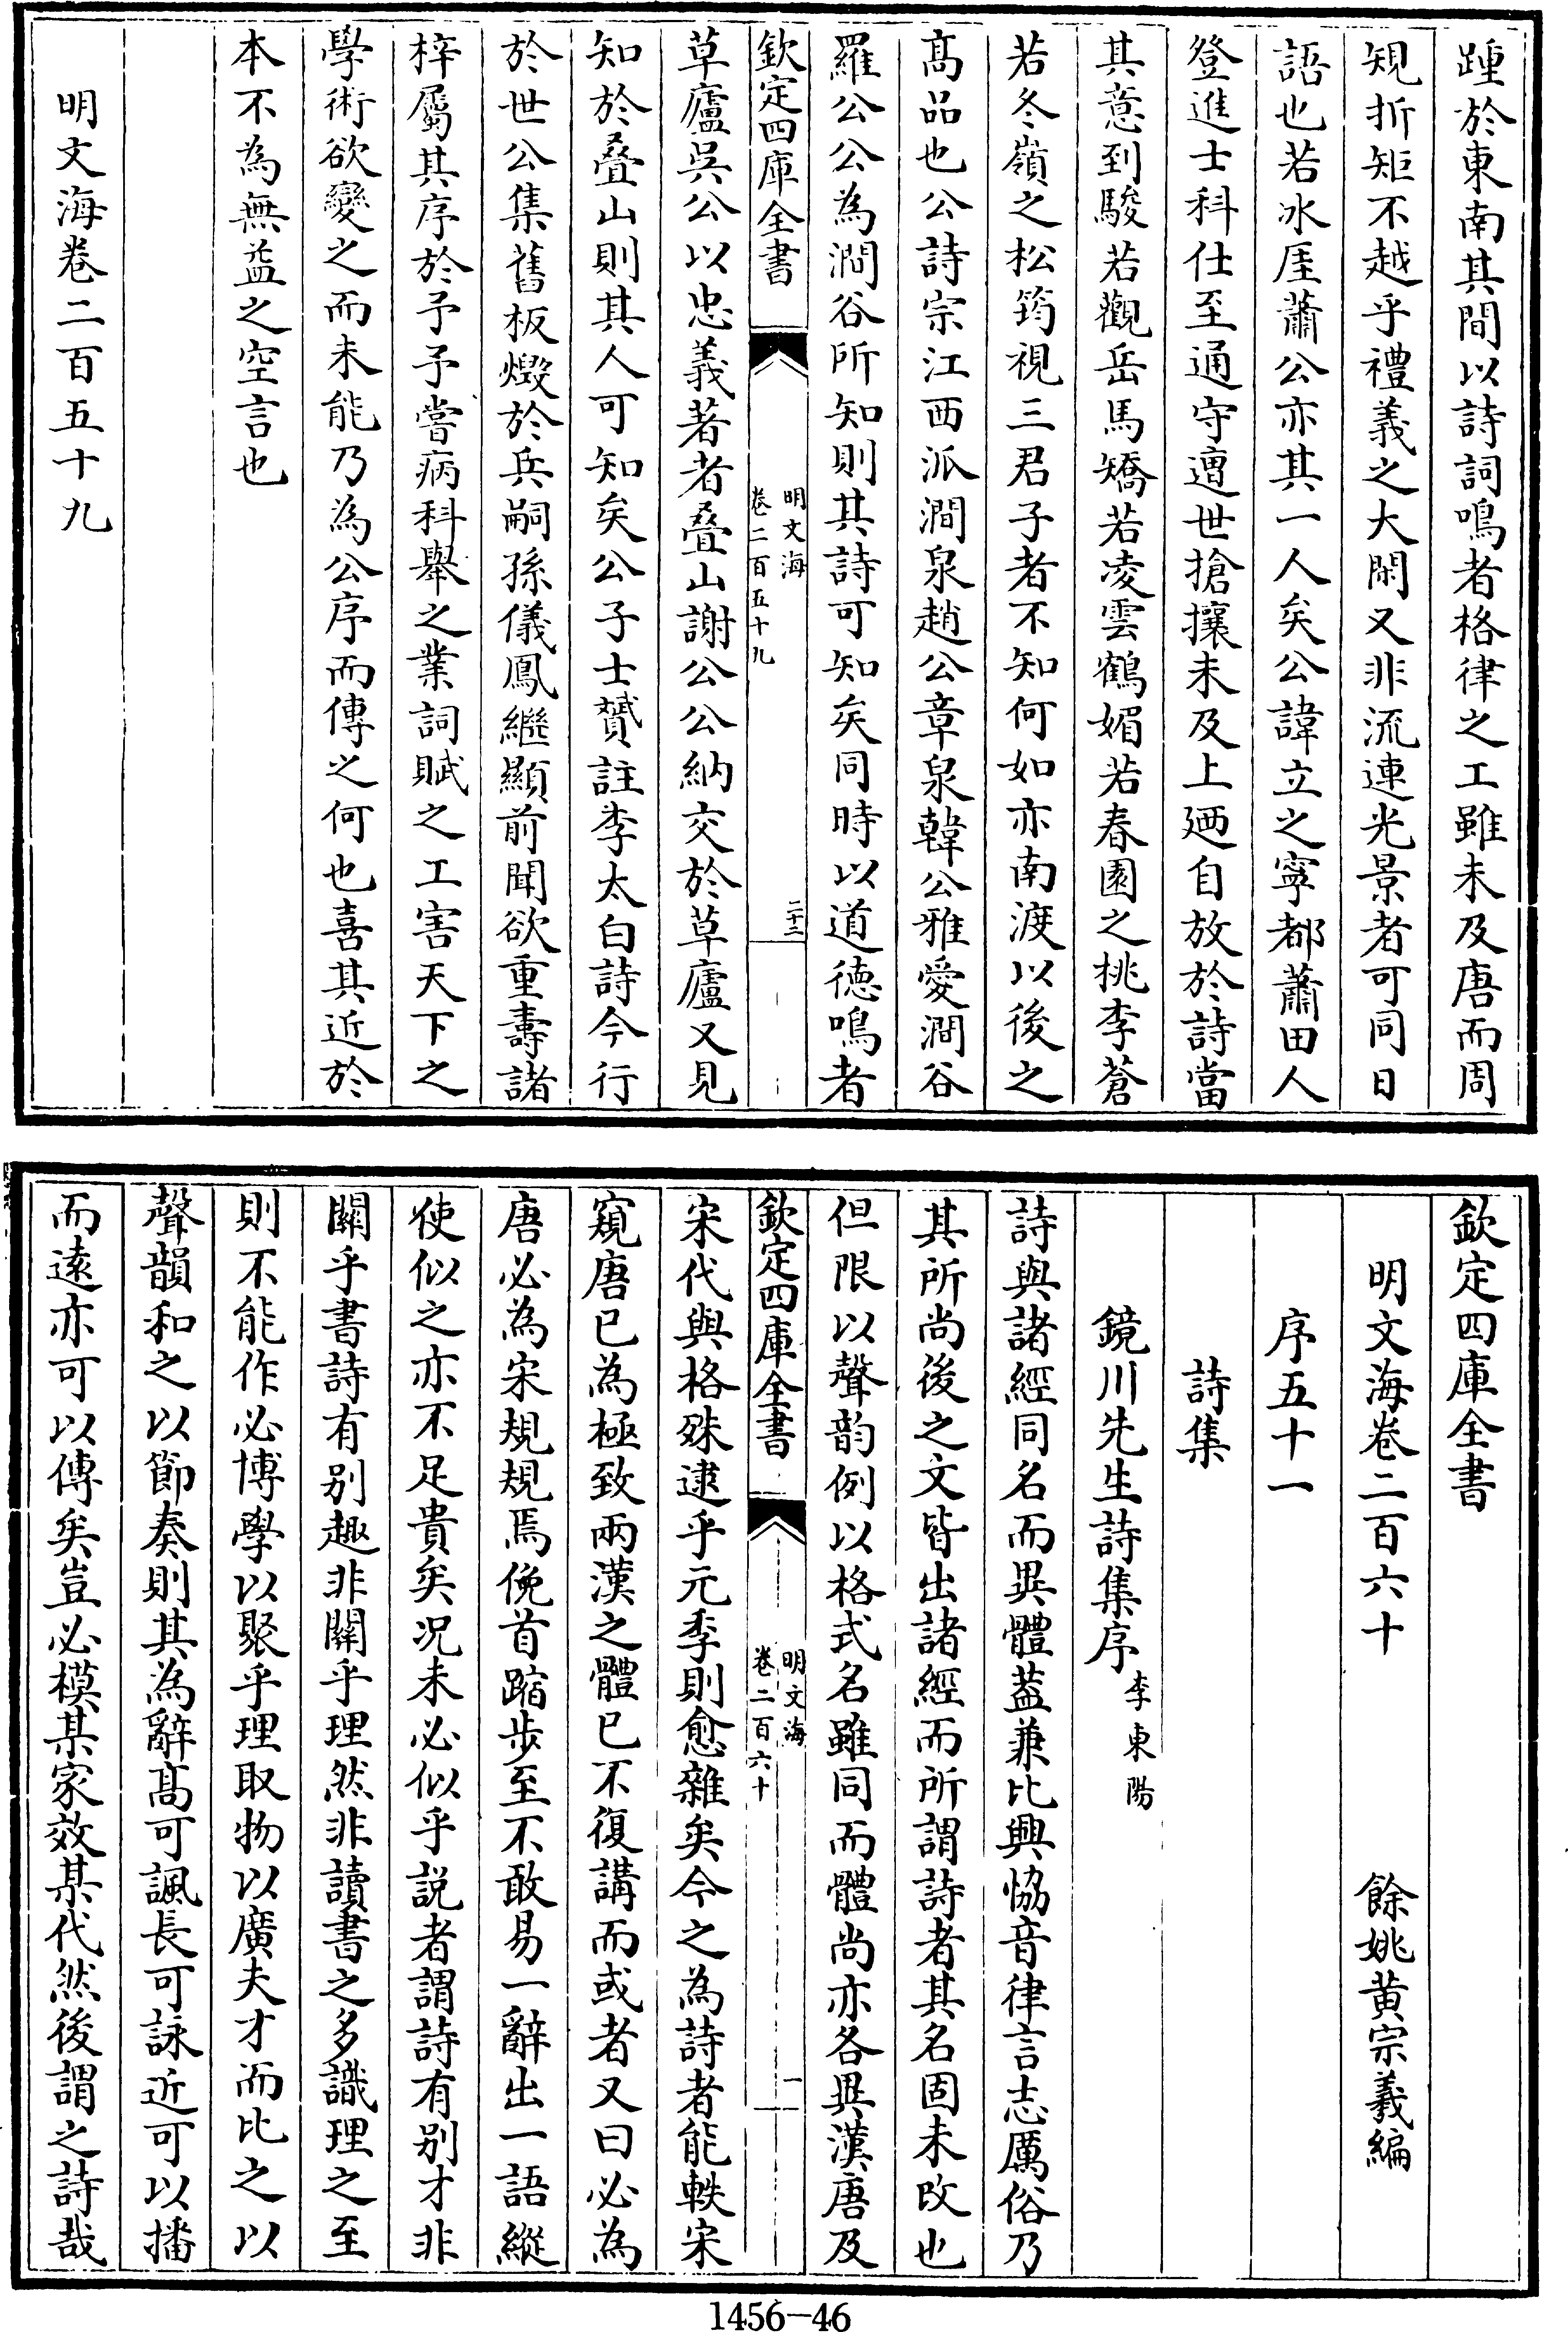 踵於東南其間以詩詞鳴者格律之工雖未及唐而周
䂓折矩不越乎禮義之大閑又非流連光景者可同日
語也若冰厓蕭公亦其一人矣公諱立之寧都蕭田人
登進士科仕至通守遭世搶攘未及上廼自放於詩當
其意到駿若觀岳馬矯若凌雲鶴媚若春園之桃李蒼
若冬嶺之松筠視三君子者不知何如亦南渡以後之
髙品也公詩宗江西派澗泉趙公章泉韓公雅愛澗谷
羅公公為澗谷所知則其詩可知矣同時以道德鳴者
欽定四庫全書
明文海
卷二百五十九
二十三
草廬吳公以忠義著者疊山謝公公納交於草廬又見
知於疊山則其人可知矣公子士贇註李太白詩今行
於世公集舊板燬於兵嗣孫儀鳳繼顯前聞欲重壽諸
梓屬其序於予予嘗病科舉之業詞賦之工害天下之
學術欲變之而未能乃為公序而傳之何也喜其近於
本不為無益之空言也
明文海卷二百五十九
欽定四庫全書
明文海卷二百六十
餘姚黄宗羲編
序五十一
詩集
鏡川先生詩集序
李東陽
詩與諸經同名而異體葢兼比興恊音律言志厲俗乃
其所尚後之文皆出諸經而所謂詩者其名固未改也
但限以聲韵例以格式名雖同而體尚亦各異漢唐及
欽定四庫全書
明文海
卷二百六十
一
宋代與格殊逮乎元季則愈雜矣今之為詩者能軼宋
窺唐已為極致兩漢之體已不復講而或者又曰必為
唐必為宋規規焉俛首蹜步至不敢易一辭出一語縱
使似之亦不足貴矣况未必似乎説者謂詩有别才非
關乎書詩有别趣非關乎理然非讀書之多識理之至
則不能作必博學以聚乎理取物以廣夫才而比之以
聲韻和之以節奏則其為辭髙可諷長可詠近可以播
而逺亦可以傳矣豈必模某家效某代然後謂之詩哉
1456-46